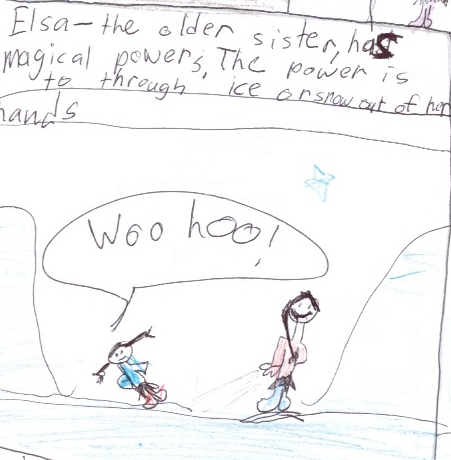 Elsa—the older sister, has
magical powers. The power is
to through ice or snow out of her
hands
Woo hoo!